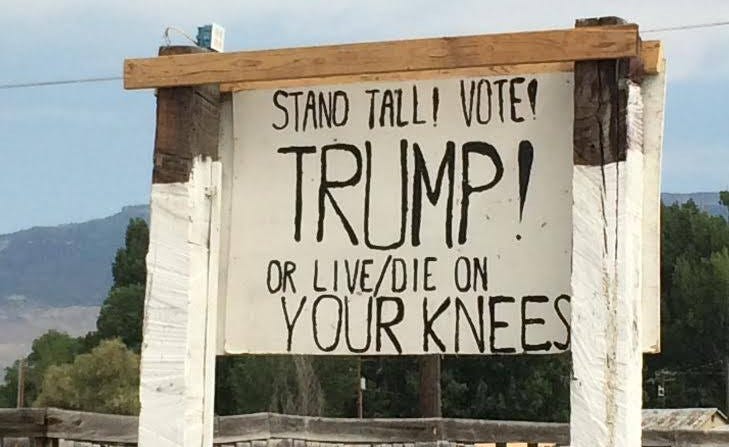 STAND TALL! VOTE!
TRUMP!
OR LIVE/DIE ON
YOUR KNEES